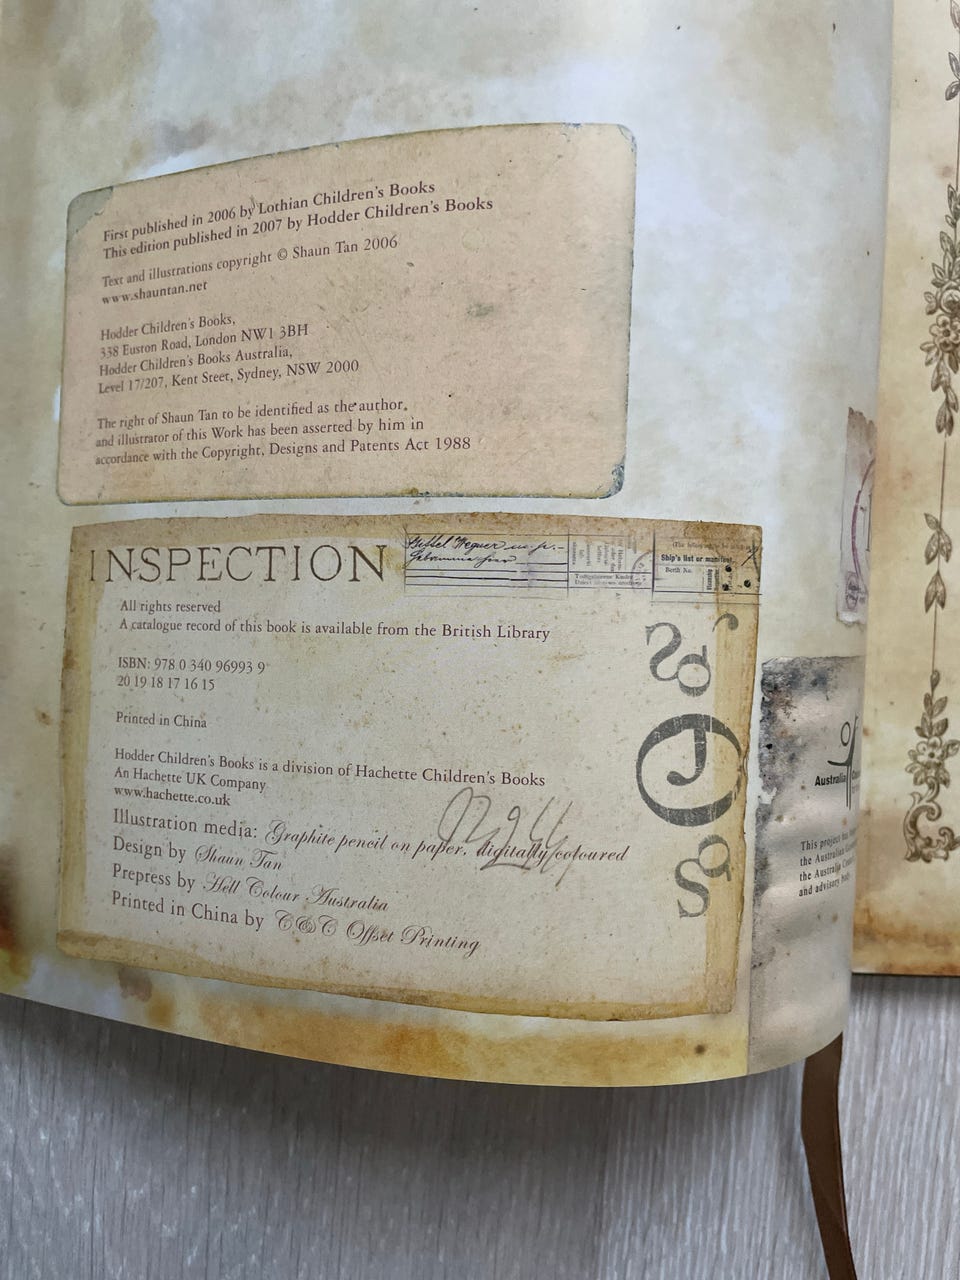 First published in 2006 by Lothian Children's Books
This edition published in 2007 by Hodder Children's Books
Text and illustrations copyright © Shaun Tan 2006
www.shauntan.net
Hodder Children's Books,
338 Euston Road, London NW1 3BH
Hodder Children's Books Australia,
Level 17/207, Kent Street, Sydney, NSW 2000
The right of Shaun Tan to be identified as the author,
and illustrator of this Work has been asserted by him in
accordance with the Copyright, Designs and Patents Act 1988
INSPECTION
Ship's list or manifest
Berth No.
All rights reserved
A catalogue record of this book is available from the British Library
ISBN: 978 0 340 96993 9
20 19 18 17 16 15
Printed in China
Hodder Children's Books is a division of Hachette Children's Books
An Hachette UK Company
www.hachette.co.uk
Illustration media: Graphite pencil on paper, digitally coloured
Design by Shaun Tan
Prepress by Hell Colour Australia
Printed in China by C&C Offset Printing
Australia
This project has
the Australian
the Australia
and advisory body